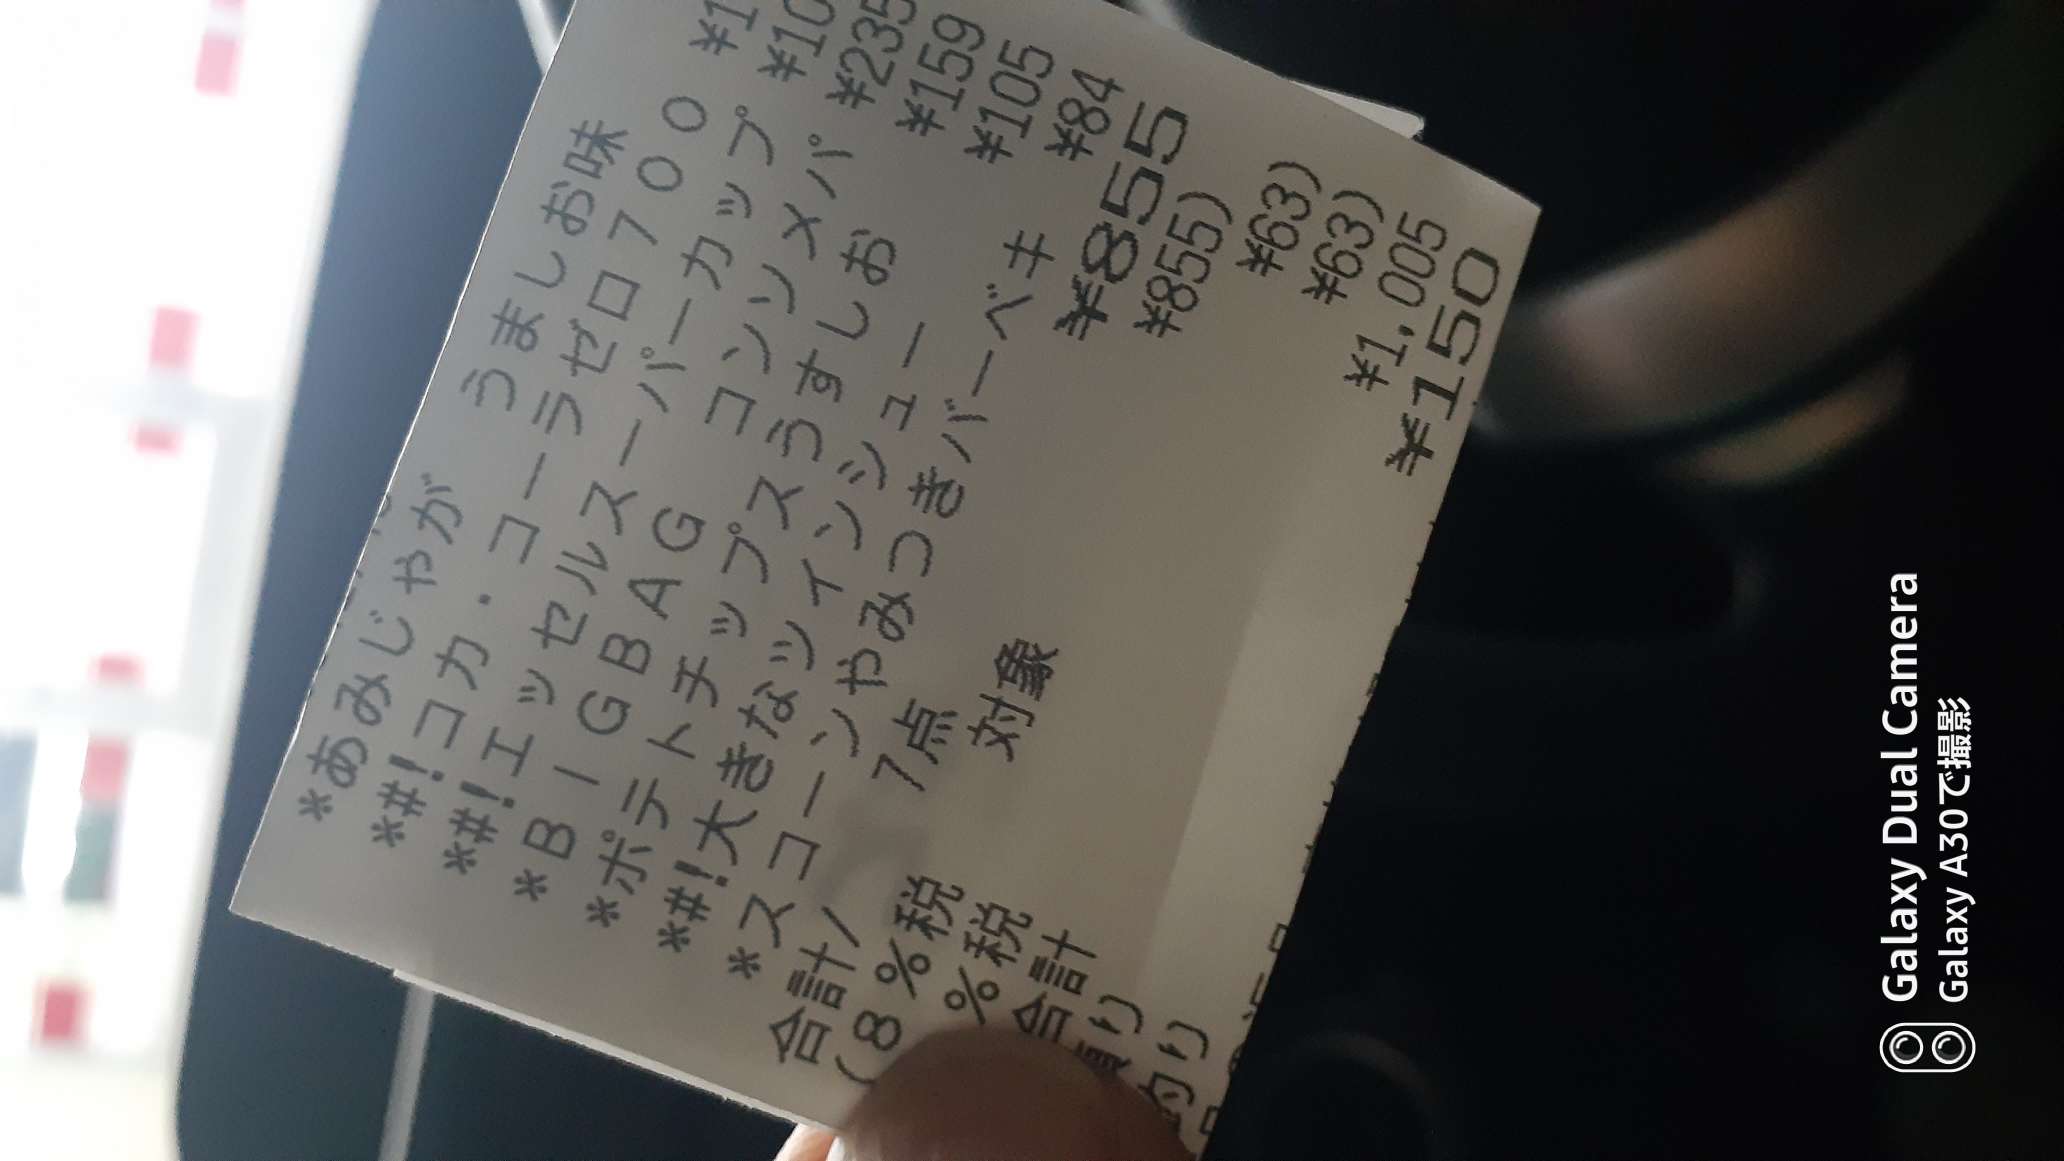 *あみじゃが うましお味
*#!コカ・コーラゼロ700
*#!エッセルスーパーカップ
*BIGBAG コンソメパ ¥235
*ポテトチップスうすしお ¥159
*#!大きなツインシュー ¥105
*スコーンやみつきバーベキ ¥84
合計/ 7点 ¥855
(8%税 対象 ¥855)
%税 ¥63)
合計 ¥63)
¥1,005
¥150
Galaxy Dual Camera
Galaxy A30で撮影